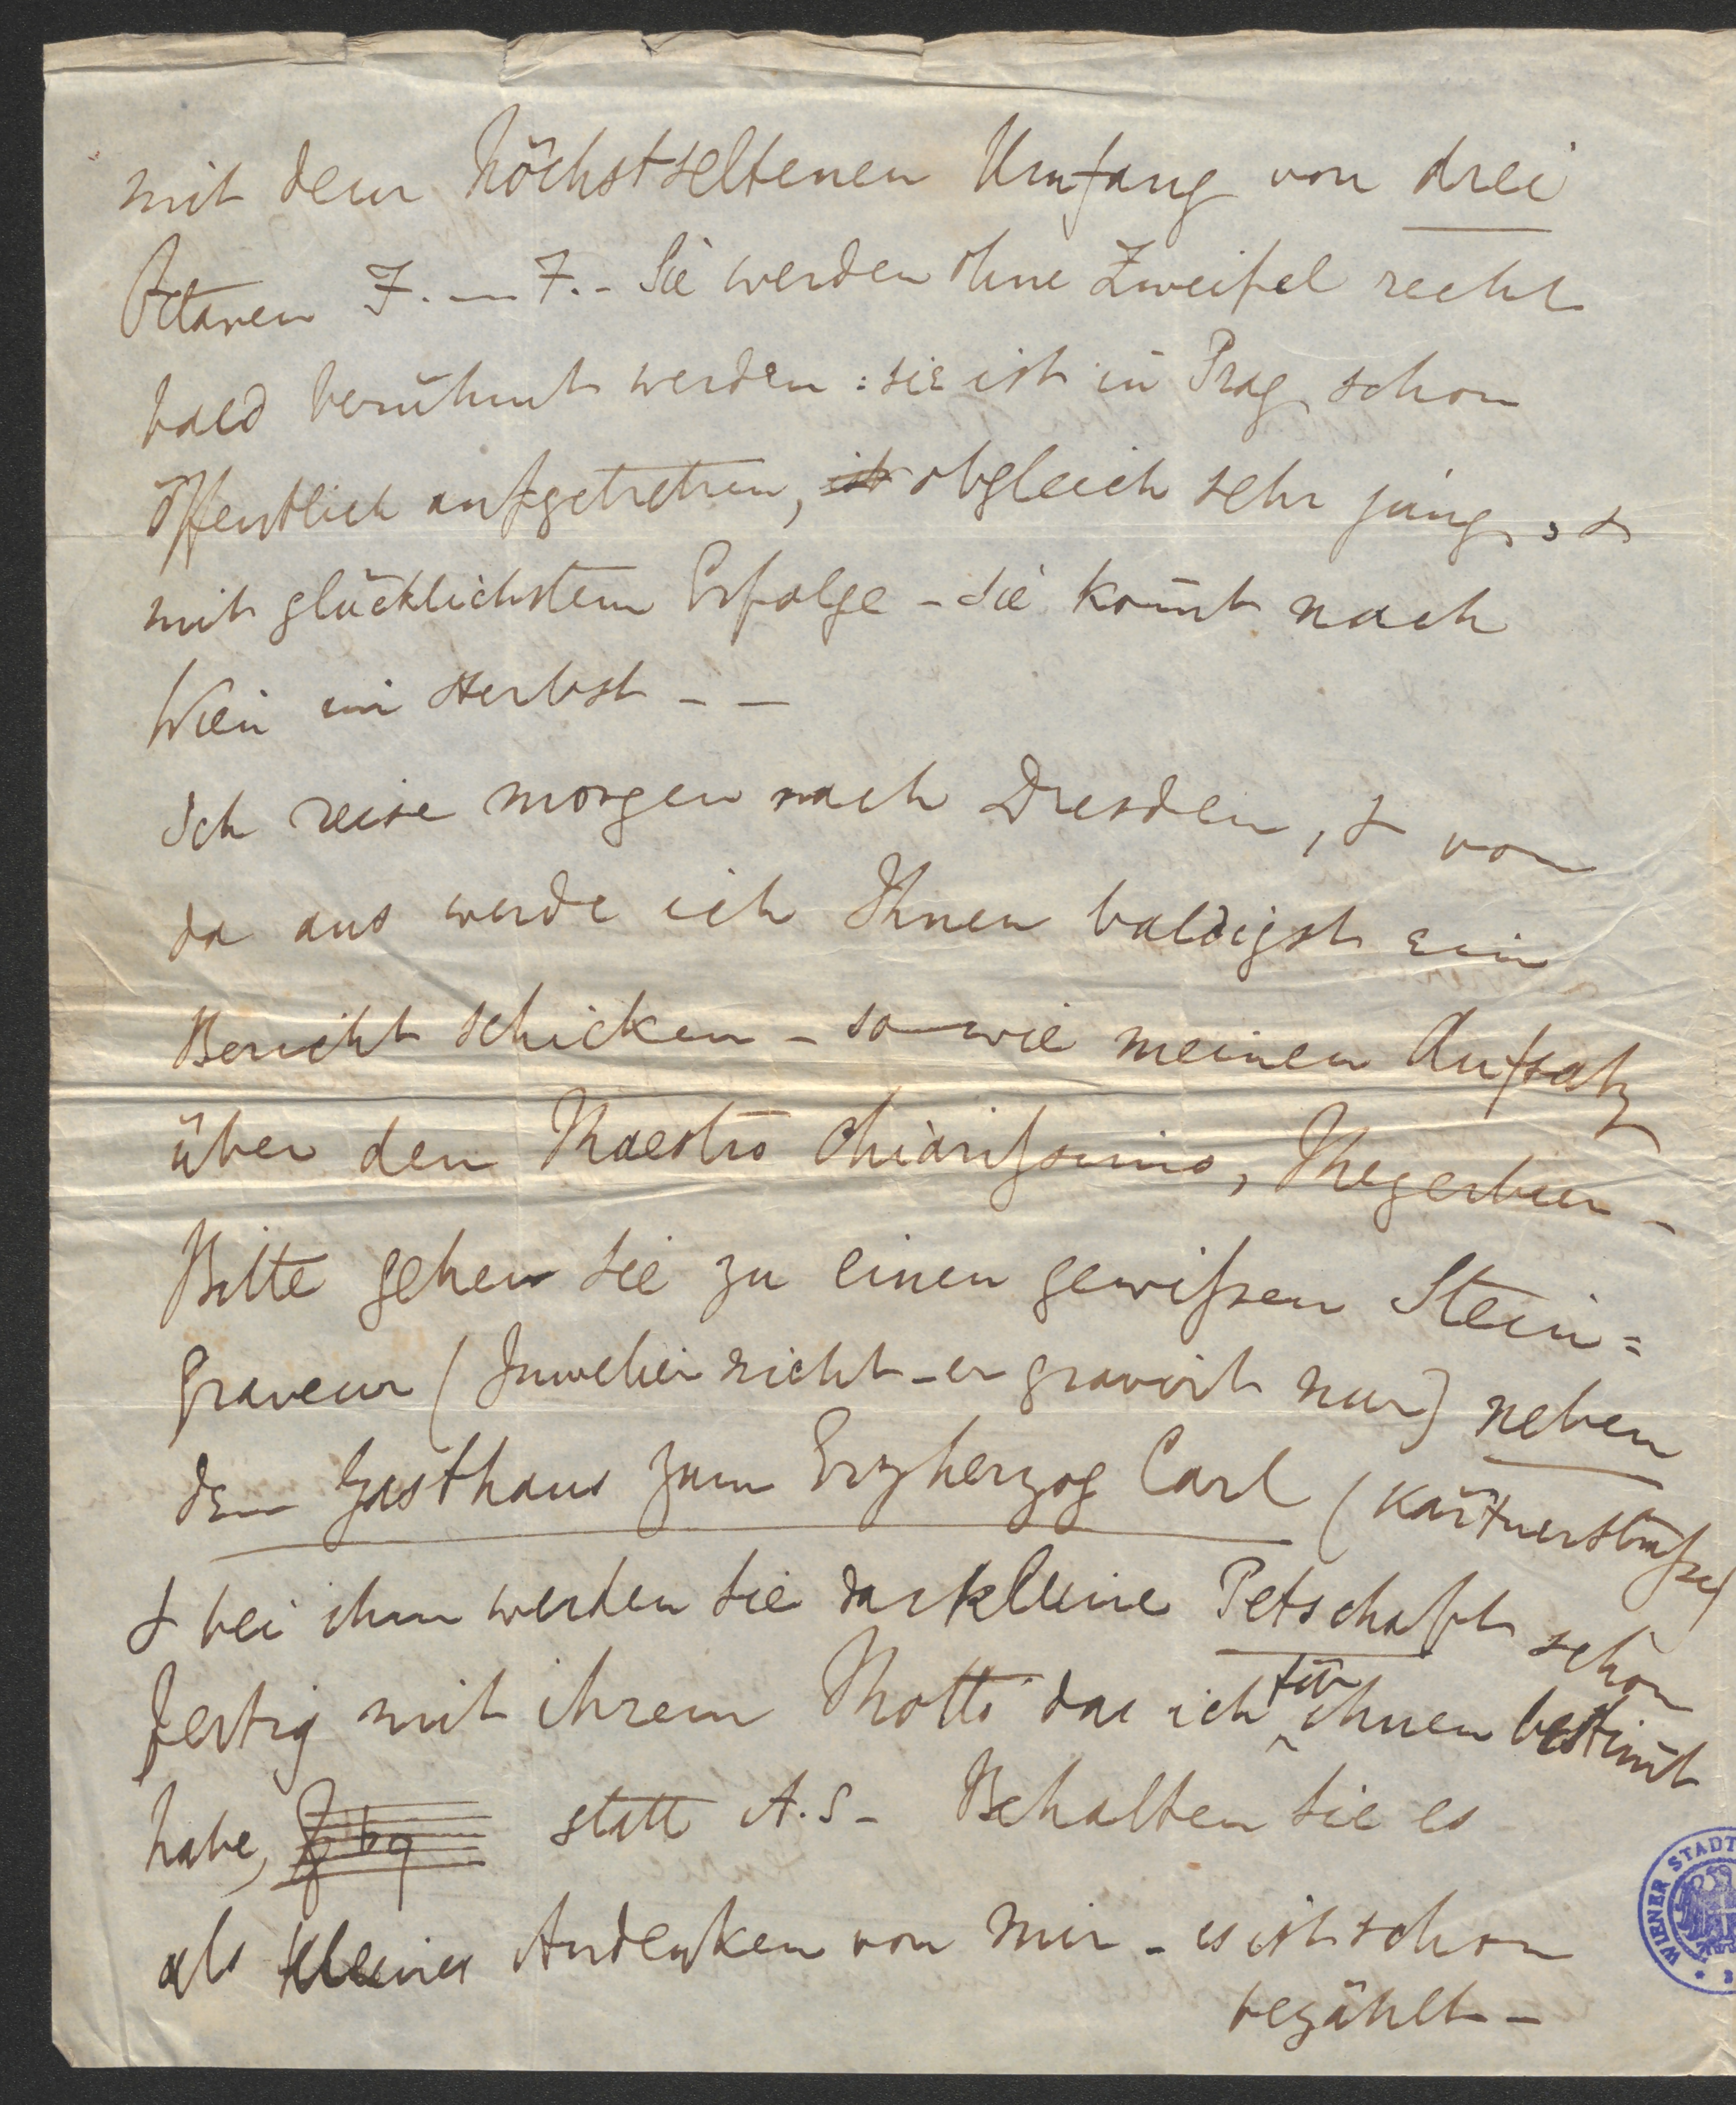 mit dem höchstseltenen Umfang von drei
Octaven F. — F. - Sie werden ohne Zweifel recht
bald berühmt werden : sie ist in Prag schon
öffentlich aufgetreten, ist obgleich sehr jung, &
mit glücklichstem Erfolge - Sie kom̅t nach
Wien im Herbst - -
Ich reise morgen nach Dresden, & von
da aus werde ich Ihnen baldigst ein
Bericht schicken - so wie meinen Aufsatz
über den Maestro chiarissimo, Meyerbeer -
Bitte gehen Sie zu einen gewissen Stein=
Graveur (Juwelier nicht - er gravirt nur) neben
dem Gasthaus zum Erzherzog Carl (Kärtnerstrasse)
& bei ihm werden Sie das kleine Petschaft schon
fertig mit ihrem Motto das ich für ihnen bestim̅t
habe, statt A. S - Behalten Sie es
als kleines Andenken von mir - es ist schon
bezählt -
WIENER STADT